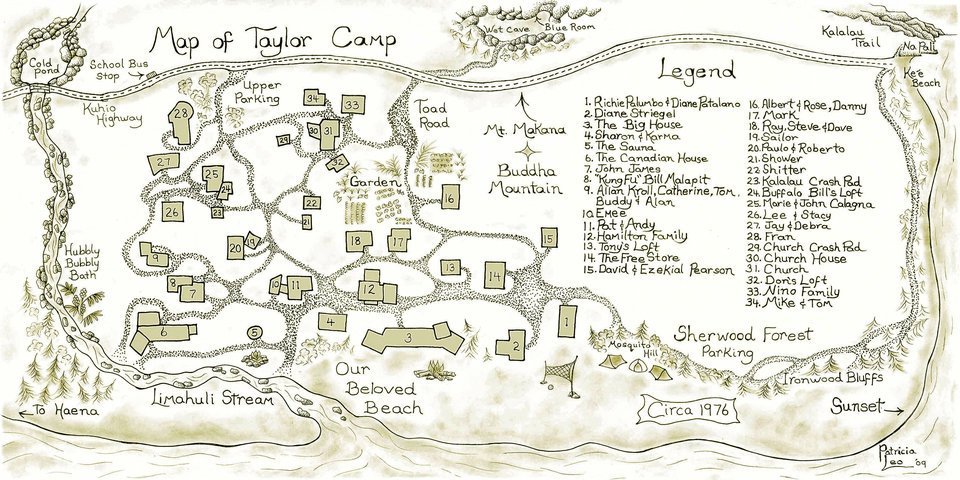 Map of Taylor Camp
Wet Cave
Blue Room
Kalalau
Trail
Na Pali
Ke'e
Beach
Cold
pond
School Bus
Stop
Kuhio
Highway
Upper
Parking
Toad
Road
Mt. Makana
Buddha
Mountain
Garden
Hubbly
Bubbly
Bath
Legend
1. Richie Palumbo & Diane Patalano
2. Diane Striegel
3. The Big House
4. Sharon & Karma
5. The Sauna
6. The Canadian House
7. John James
8. "Kung Fu" Bill Malapit
9. Allan Kroll, Catherine, Tom,
Buddy & Alan
10. Emee
11. Pat & Andy
12. Hamilton Family
13. Tony's Loft
14. The Free Store
15. David & Ezekial Pearson
16. Albert & Rose, Danny
17. Mark
18. Ray, Steve & Dave
19. Sailor
20. Paulo & Roberto
21. Shower
22. Shitter
23. Kalalau Crash Pad
24. Buffalo Bill's Loft
25. Marie & John Calagna
26. Lee & Stacy
27. Jay & Debra
28. Fran
29. Church Crash Pad
30. Church House
31. Church
32. Don's Loft
33. Nino Family
34. Mike & Tom
34
33
28
30
31
29
27
32
25
24
16
22
26
23
21
20
19
18
17
15
9
13
14
8
7
10
11
12
6
5
4
3
2
1
Sherwood Forest
Parking
Mosquito
Hill
Ironwood Bluffs
Our
Beloved
Beach
Limahuli Stream
To Haena
Circa 1976
Sunset
Patricia
Leo '09